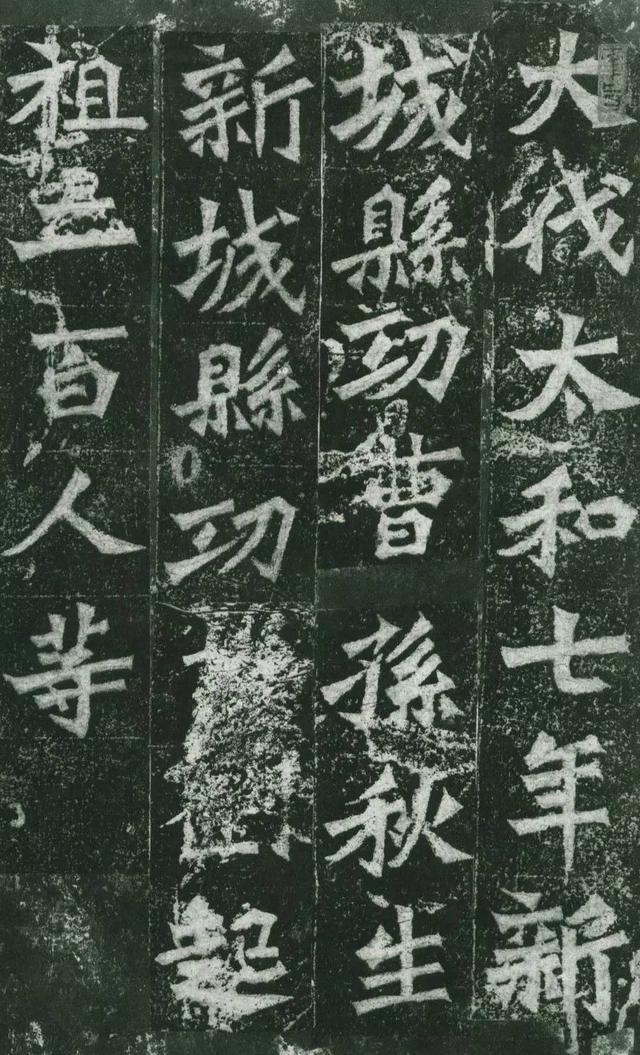 大伐太和七年新
城縣功曹孫秋生
新城縣功起
祖二百人等